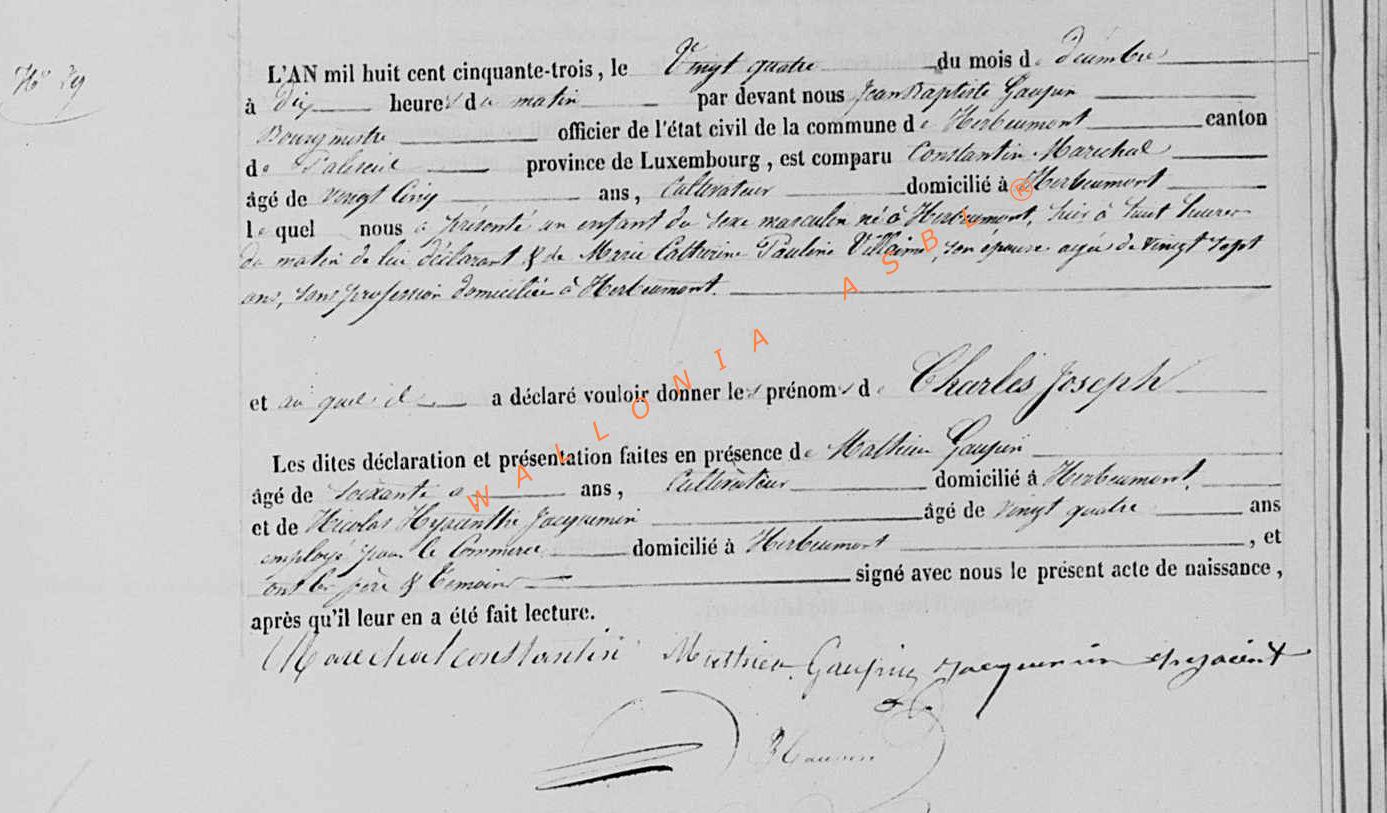 N° 29
L'AN mil huit cent cinquante-trois, le Vingt quatre du mois de décembre
à dix heures du matin par devant nous Jean Baptiste Gaupin
Bourgmestre officier de l'état civil de la commune de Herbeumont canton
de Paliseul province de Luxembourg, est comparu Constantin Maréchal
âgé de vingt Cinq ans, Cultivateur domicilié à Herbeumont
le quel nous a présenté un enfant du sexe masculin né à Herbeumont, hier à huit heures
du matin de lui déclarant & de Marie Catherine Pauline Villaime, son épouse agée de vingt sept
ans, sans profession domiciliée à Herbeumont.
et au quel il a déclaré vouloir donner les prénoms de Charles Joseph
Les dites déclaration et présentation faites en présence de Mathieu Gaupin
âgé de soixante ans, Cultivateur domicilié à Herbeumont
et de Nicolas Hyacinthe Jacquemin âgé de vingt quatre ans
employé pour le Commerce domicilié à Herbeumont, et
ont les père & témoins signé avec nous le présent acte de naissance,
après qu'il leur en a été fait lecture.
Marechal constantin Mathieu Gaupin Jacquemin
WALLONIA ASBL ®